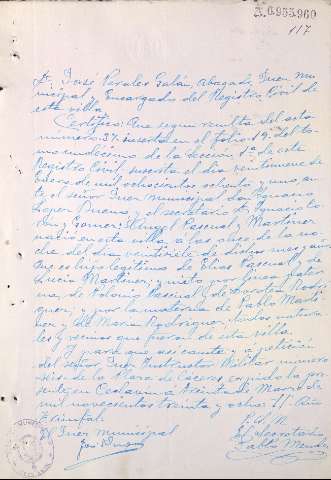 A.6955.960
117
D. José Perales Galán, Abogado, Juez Mu-
nicipal y Encargado del Registro Civil de
esta villa.
Certifico: Que según resulta del acta
número 37 inserta en el folio 19 del to-
mo undécimo de la sección 1ª de este
Registro Civil, suscrita el día veintinueve de
Enero de mil ochocientos setenta y uno an-
te el señor Juez municipal don Ignacio
López Bueno y el secretario D. Ignacio
y Gómez: Pascual y Martínez
nació en esta villa a las once de la no-
che del día veintisiete de dicho mes y año.
Que es hijo legítimo de Elías Pascual y de
Lucía Martínez; y nieto por línea pater-
na, de Polonio Pascual y de Dorotea Rodrí-
guez; y por la materna de Pablo Martí-
nez y de María Rodríguez, todos natura-
les y vecinos que fueron de esta villa.
Y para que así conste y a petición
del señor Juez Instructor Militar número
de la Plaza de Cáceres expido la pre-
sente en Ceclavín a treinta de Marzo de
mil novecientos treinta y ocho. II Año
Triunfal.
El Juez municipal
José Perales
P. S. M.
El Secretario
Pablo Mendo